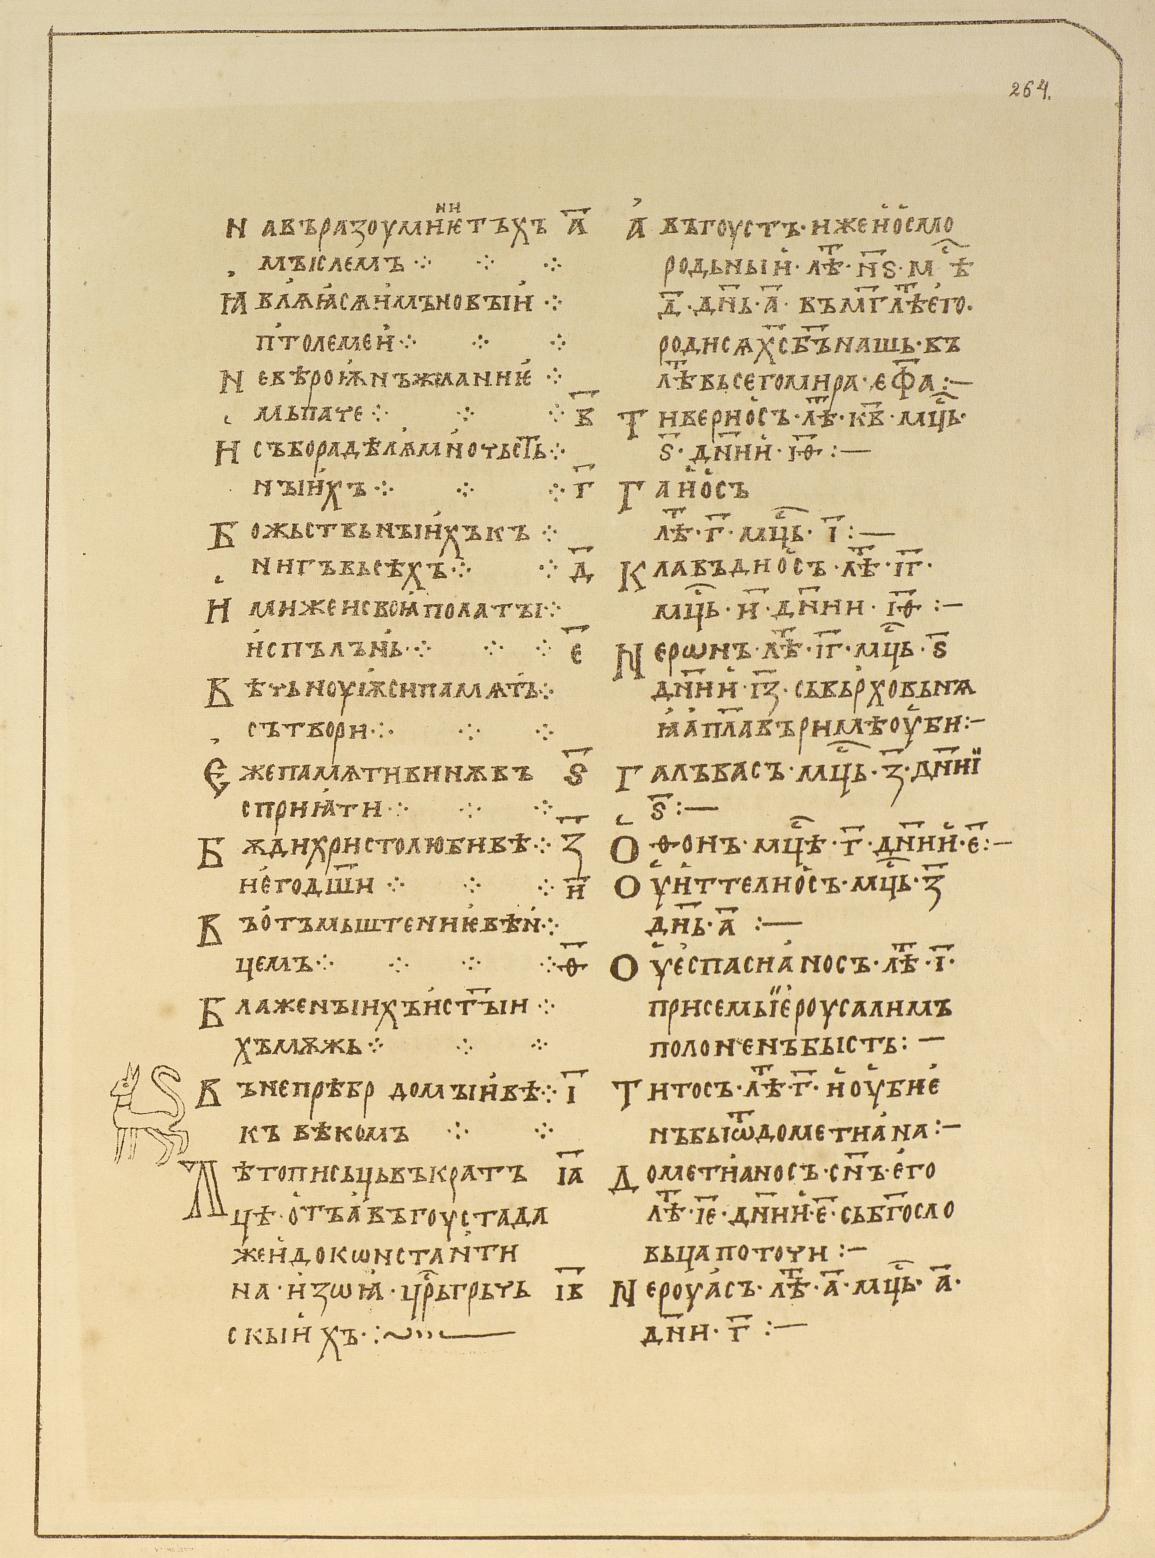 264.
Н авъразоумнѥтъхъ а҃
нн
мꙑслемъ ⁘ ⁘ ⁘
Ꙗ влѧꙗсѧимъновꙑи ⁘
птолемеи ⁘ ⁘ ⁘
Н евѣроѭнъжеланиѥ ⁘
мьпаче ⁘ ⁘ ⁘ в҃
И съборадѣлѧмночьстⸯь ⁘
нꙑихъ ⁘ ⁘ ⁘ г҃
Б ожьствьнꙑихъкъ ⁘
нигъвьсѣхъ ⁘ ⁘ д҃
И миженсвоꙗполатꙑ ⁘
испълънь ⁘ ⁘ ⁘ е҃
В ѣчьноуѭсипамѧть ⁘
сътвори ⁘ ⁘ ⁘
Е жепамѧтивинѫвъ ѕ҃
сприꙗти ⁘ ⁘ ⁘
Б ѫдихристолюбивѣ ⁘ з҃
негодш҃и ⁘ ⁘ ⁘ и҃
В ъотъмьштениѥвѣн ⁘
цемъ ⁘ ⁘ ⁘ ⁘ ѳ҃
Б лаженꙑихъист҃ꙑи ⁘
хъмѫжь ⁘ ⁘ ⁘
В ънепрѣбр домꙑивѣ ⁘ і҃
къ вѣкомъ ⁘ ⁘
Л ѣтописьцьвъкратъ і҃а
цѣ·отъавъгоустада
жеидокѡнстанти
на·изѡꙗ·цр҃ьгрьчь і҃в
скꙑихъ·:~···—
А въгоустъ·ижеиосмо
родьнꙑи·лѣ҃·н҃ѕ·м҃ѣ
д҃·дн҃ь·а҃·въмг҃лѣ҃его·
родисѧх҃сб҃ънашь·въ
лѣ҃вьсегомира·еф҃а:—
Т ивериосъ·лѣ҃·кв҃·мц҃ь·
ѕ҃·дн҃ии·іѳ҃:—
Г аиосъ
лѣ҃·г҃·мц҃ь·і҃:—
К лавъдиосъ·лѣ҃·іг҃·
мц҃ь·и҃·дн҃ии·іѳ҃:—
Н ерѡнъ·лѣ҃·іг҃·мц҃ь·ѕ҃
дн҃ии·із҃·сьвьрховьнѧ
ꙗапл҃авъримѣоуби:—
Г алъбасъ·мц҃ь·з҃·дн҃иї
ѕ҃:—
О ѳонъ·мц҃ѣ·г҃·дн҃ии·е҃:—
О уиттелиосъ·мц҃ь·з҃
дн҃ь·а҃:—
О уеспасианосъ·лѣ҃·і҃·
присемьїероусалимъ
полоненъбꙑсть:—
Т итосъ·лѣ҃·г҃·иоубие
нъбꙑѿдометиана:—
Д ометианосъ·сн҃ъ·его
лѣ҃·іе҃·дн҃ии·е҃·сьбг҃осло
вьцапоточи:—
Н ероуасъ·лѣ҃·а҃·мц҃ь·а҃·
дн҃и·г҃:—